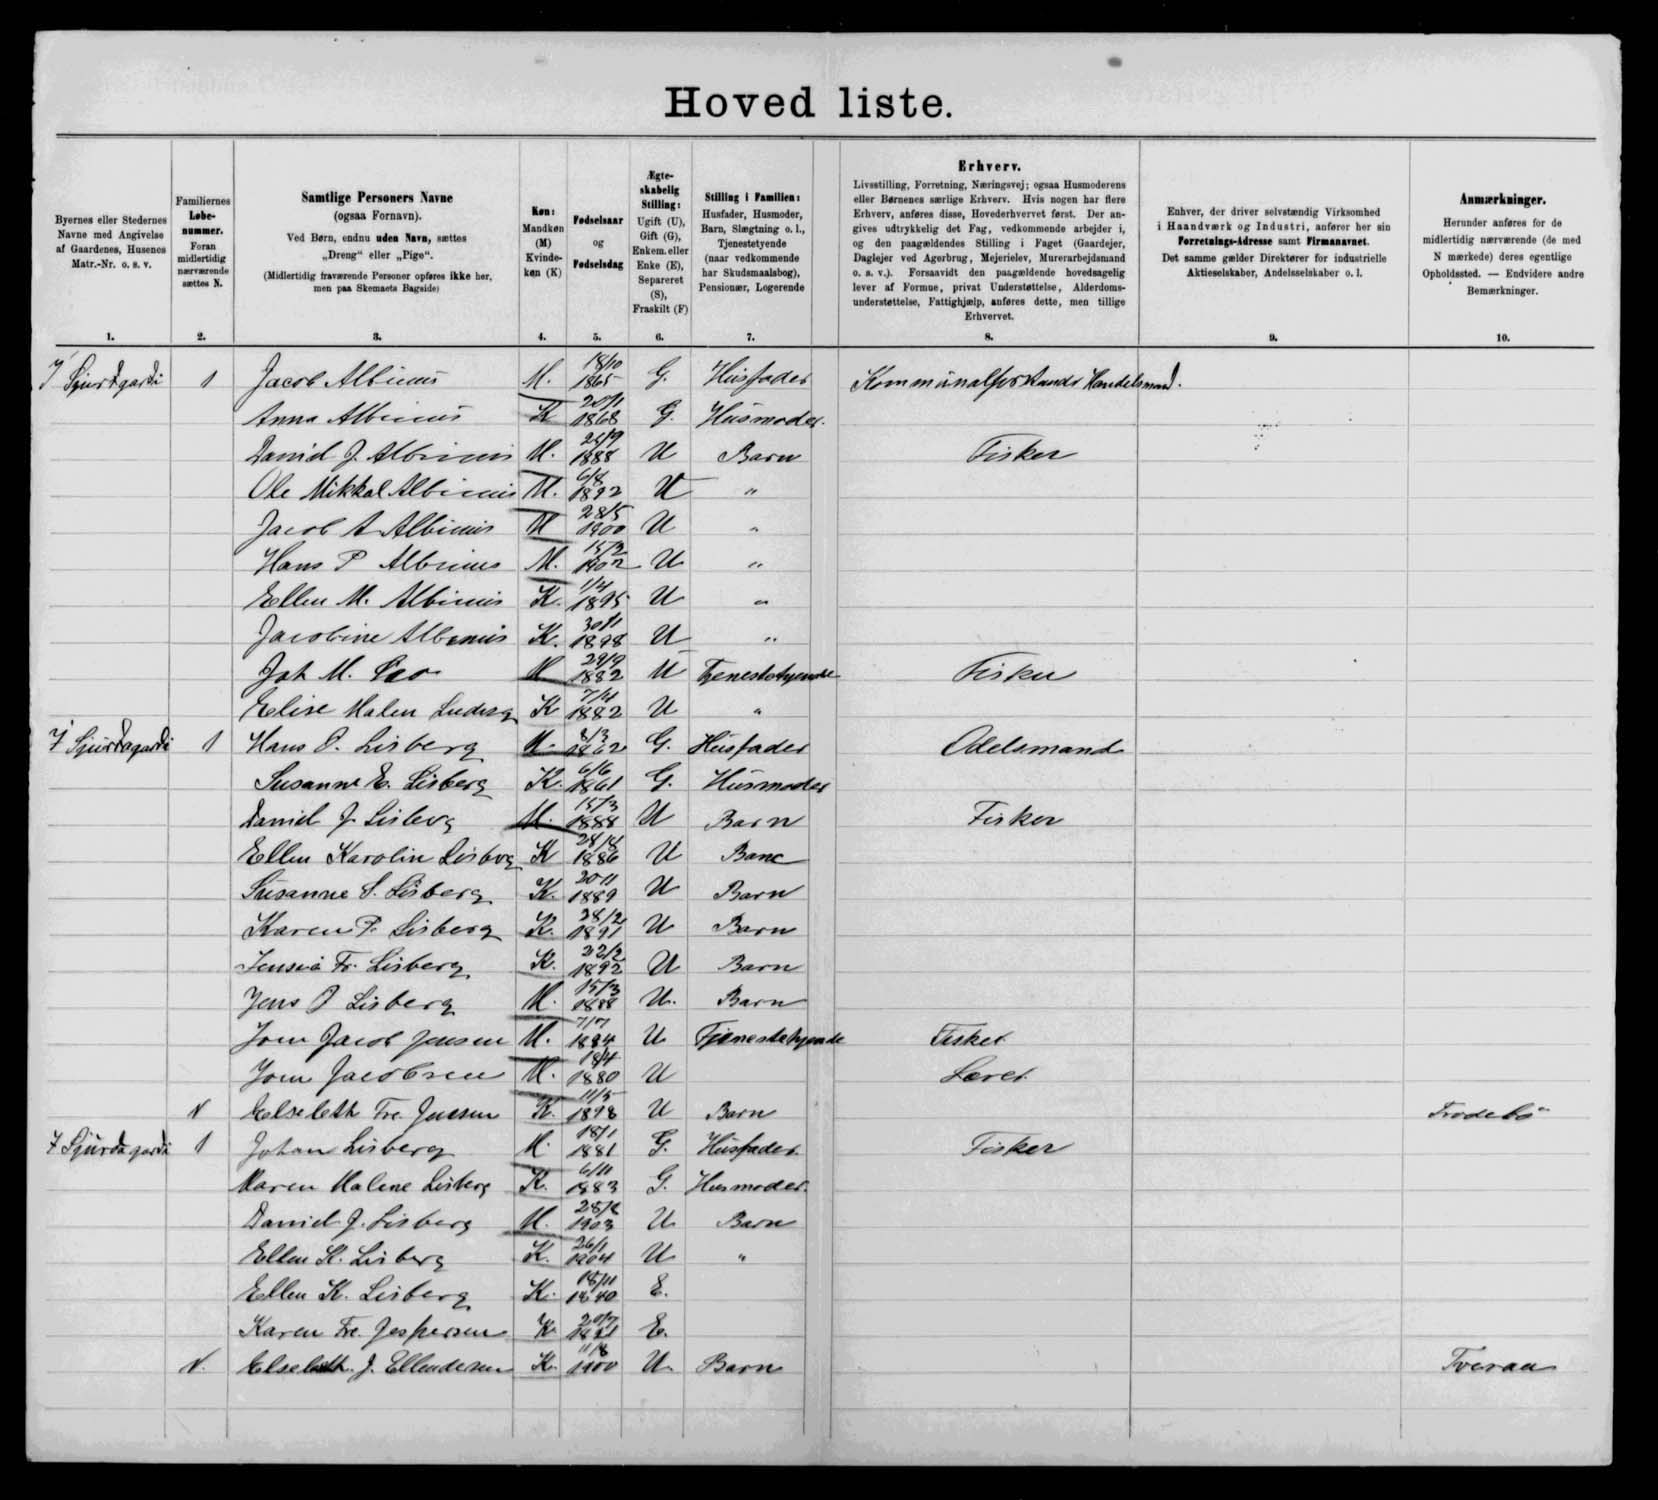 Hoved liste.
Byernes eller Stedernes
Navne med Angivelse
af Gaardenes, Husenes
Matr.-Nr. o. s. v.
1.
Familiernes
Løbe-
nummer.
Foran
midlertidig
nærværende
sættes N.
2.
Samtlige Personers Navne
(ogsaa Fornavn).
Ved Børn, endnu uden Navn, sættes
„Dreng“ eller „Pige“.
(Midlertidig fraværende Personer opføres ikke her,
men paa Skemaets Bagside)
3.
Køn:
Mandkøn
(M)
Kvinde-
køn (K)
4.
Fødselsaar
og
Fødselsdag
5.
Ægte-
skabelig
Stilling:
Ugift (U),
Gift (G),
Enkem. eller
Enke (E),
Separeret
(S),
Fraskilt (F)
6.
Stilling i Familien:
Husfader, Husmoder,
Barn, Slægtning o. l.,
Tjenestetyende
(naar vedkommende
har Skudsmaalsbog),
Pensionær, Logerende
7.
Erhverv.
Livsstilling, Forretning, Næringsvej; ogsaa Husmoderens
eller Børnenes særlige Erhverv. Hvis nogen har flere
Erhverv, anføres disse, Hovederhvervet først. Der an-
gives udtrykkelig det Fag, vedkommende arbejder i,
og den paagældendes Stilling i Faget (Gaardejer,
Daglejer ved Agerbrug, Mejerielev, Murerarbejdsmand
o. s. v.). Forsaavidt den paagældende hovedsagelig
lever af Formue, privat Understøttelse, Alderdoms-
understøttelse, Fattighjælp, anføres dette, men tillige
Erhvervet.
8.
Enhver, der driver selvstændig Virksomhed
i Haandværk og Industri, anfører her sin
Forretnings-Adresse samt Firmanavnet.
Det samme gælder Direktører for industrielle
Aktieselskaber, Andelsselskaber o. l.
9.
Anmærkninger.
Herunder anføres for de
midlertidig nærværende (de med
N mærkede) deres egentlige
Opholdssted. — Endvidere andre
Bemærkninger.
10.
Jacob Albinus M. 18/10 1865 G. Husfader Handelsmand.
Anna Albinus K 1868 G. Husmoder.
Daniel J. Albinus M. 1888 U Barn Fisker
Ole Mikkal Albinus M. 1892 U "
Jacob A Albinus M 28/5 1900 U "
Hans P Albinus M. 15/3 1902 U "
Ellen M. Albinus K. 1/4 1895 U "
Jacobine Albinus K. 1898 U "
Joh M. M 29/9 1882 U Tjenestetyende Fisker
Elise Malen K 1882 U "
1 Hans Lisberg M. 8/3 1862 G. Husfader Odelsmand
Susanne E. Lisberg K. 6/6 1861 G. Husmoder
Daniel J Lisberg M. 15/3 1888 U Barn Fisker
Ellen Karolin Lisberg K 1886 U Barn
Susanne S. Lisberg K. 1889 U Barn
Karen P. Lisberg K. 28/2 1891 U Barn
Fr. Lisberg K. 22/2 1892 U Barn
Jens Lisberg M. 15/3 1888 U. Barn
Jacob Jensen M. 7/7 1884 U Tjenestetyende Fisker
Jacobsen M. 18/4 1880 U Lærer
N Elsebeth Fre. Jensen K. 11/5 1898 U Barn Trodebø
1 Johan Lisberg M. 18/1 1881 G. Husfader. Fisker
Maren Malene Lisberg K. 6/11 1883 G. Husmoder.
Daniel J. Lisberg M. 1903 U Barn
Ellen K. Lisberg K. 26/1 1904 U "
Ellen K. Lisberg K. 18/11 1840 E.
Karen Fre. Jespersen K E.
N. Elsebeth J. Ellendersen K. 11/8 1900 U. Barn Tveraa